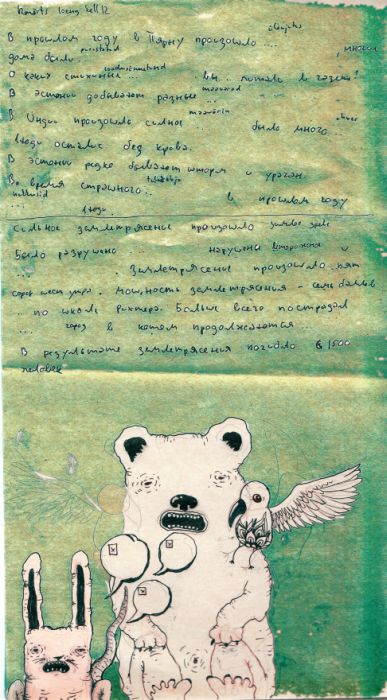 loeng kell 12
üleujutus
В прошлом году в Пярну произошло ...
purustatud
дома были
loodusõnnetused
О каких стихийных ... вы ... читали в газете?
maavarad
В Эстонии добывают разные ...
maavärin
В Индии произошло сильное ... было много
люди остались без крова.
В Эстонии редко бывают шторм и ураган
tulekahju
Во время страшного ...
hukkusid
... в прошлом году
люди.
Сильное землетрясение произошло
Было разрушено ... нарушены и
. землетрясение произошло пять
сорок шесть утра. Мощность землетрясения - семь баллов
.. по шкале рихтера. Больше всего пострадал
... город в котом продолжаются ...
В результате землетрясения погибло 6 1500
человек